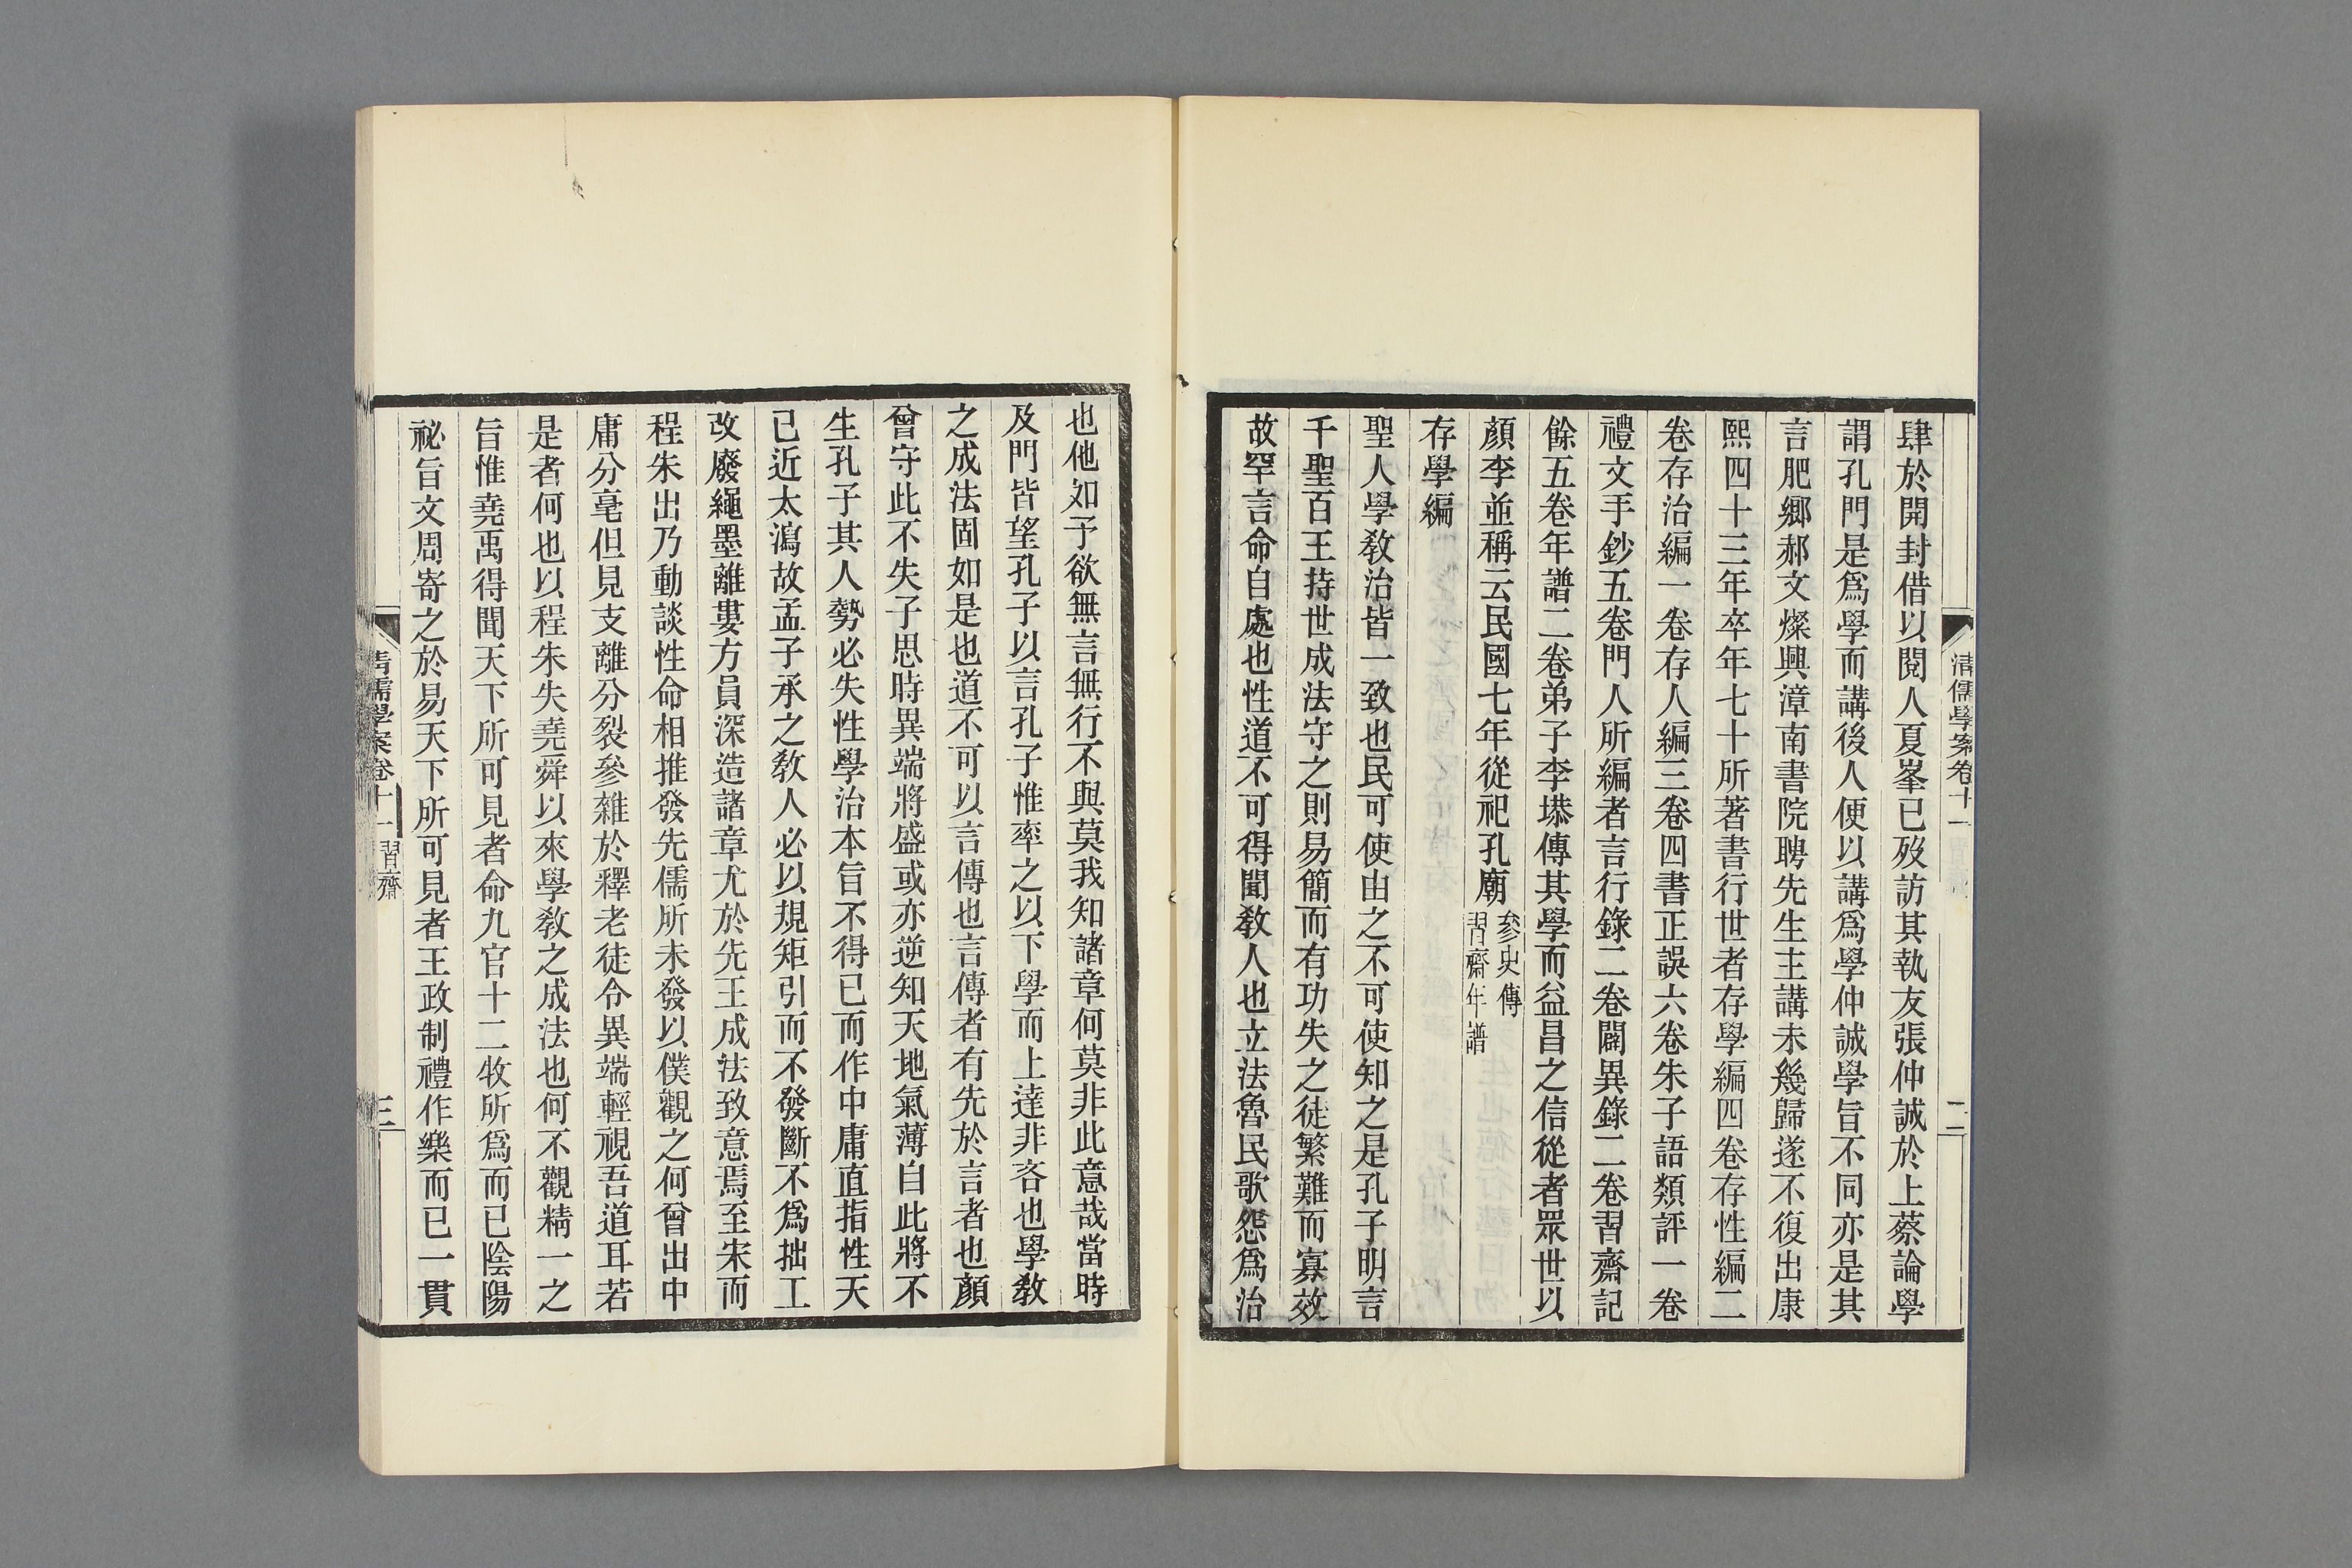 清儒學案卷十一
二
肆於開封借以閱人夏峯已歿訪其執友張仲誠於上蔡論學
謂孔門是爲學而講後人便以講爲學仲誠學旨不同亦是其
言肥鄉郝文燦興漳南書院聘先生主講未幾歸遂不復出康
熙四十三年卒年七十所著書行世者存學編四卷存性編二
卷存治編一卷存人編三卷四書正誤六卷朱子語類評一卷
禮文手鈔五卷門人所編者言行錄二卷闢異錄二卷習齋記
餘五卷年譜二卷弟子李塨傳其學而益昌之信從者眾世以
顏李並稱云民國七年從祀孔廟
參史傳
習齋年譜
存學編
聖人學教治皆一致也民可使由之不可使知之是孔子明言
千聖百王持世成法守之則易簡而有功失之徒繁難而寡效
故罕言命自處也性道不可得聞教人也立法魯民歌怨爲治
也他如予欲無言無行不與莫我知諸章何莫非此意哉當時
及門皆望孔子以言孔子惟率之以下學而上達非吝也學教
之成法固如是也道不可以言傳也言傳者有先於言者也顏
曾守此不失子思時異端將盛或亦逆知天地氣薄自此將不
生孔子其人勢必失性學治本旨不得已而作中庸直指性天
已近太瀉故孟子承之教人必以規矩引而不發斷不爲拙工
改廢繩墨離婁方員深造諸章尤於先王成法致意焉至宋而
程朱出乃動談性命相推發先儒所未發以僕觀之何曾出中
庸分毫但見支離分裂參雜於釋老徒令異端輕視吾道耳若
是者何也以程朱失堯舜以來學教之成法也何不觀精一之
旨惟堯禹得聞天下所可見者命九官十二牧所爲而已陰陽
祕旨文周寄之於易天下所可見者王政制禮作樂而已一貫
清儒學案卷十一
習齋
三